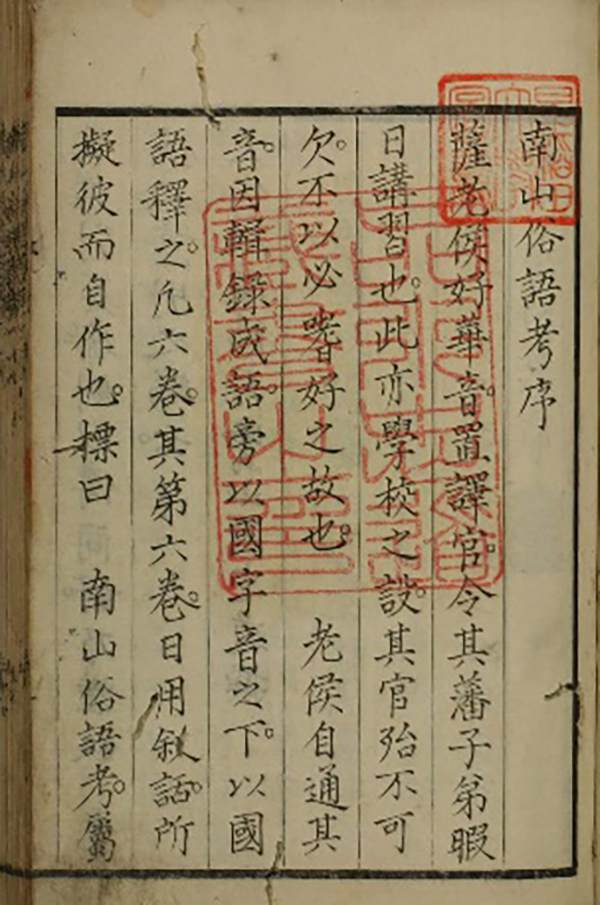 南山俗語考序
薩老侯好華音。置譯官。令其藩子弟暇
日講習也。此亦學校之設。其官殆不可
欠。不以必嗜好之故也。　老侯自通其
音。因輯錄成語。旁以國字音之。下以國
語釋之。凡六卷。其第六卷日用敘話。所
擬彼而自作也。標曰　南山俗語考。屬